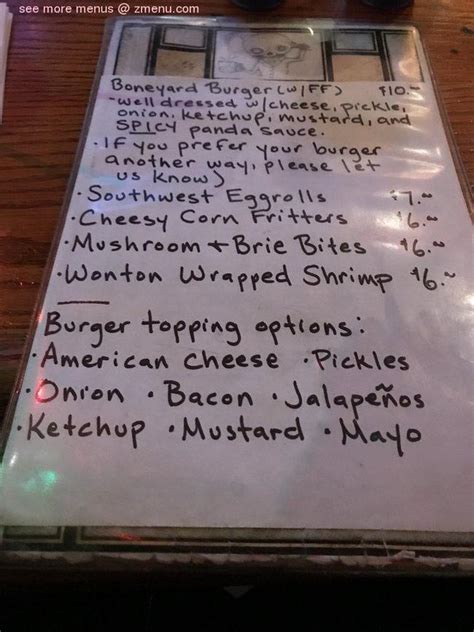 see more menus @ zmenu.com
Boneyard Burger (w/FF) $10.-
-well dressed w/cheese, pickle,
onion, ketchup, mustard, and
SPICY panda sauce.
·If you prefer your burger
another way, please let
us know)
·Southwest Eggrolls $7.00
·Cheesy Corn Fritters $6.00
·Mushroom + Brie Bites $6.00
·Wonton Wrapped Shrimp $6.00
Burger topping options:
·American Cheese ·Pickles
·Onion ·Bacon ·Jalapeños
·Ketchup ·Mustard ·Mayo